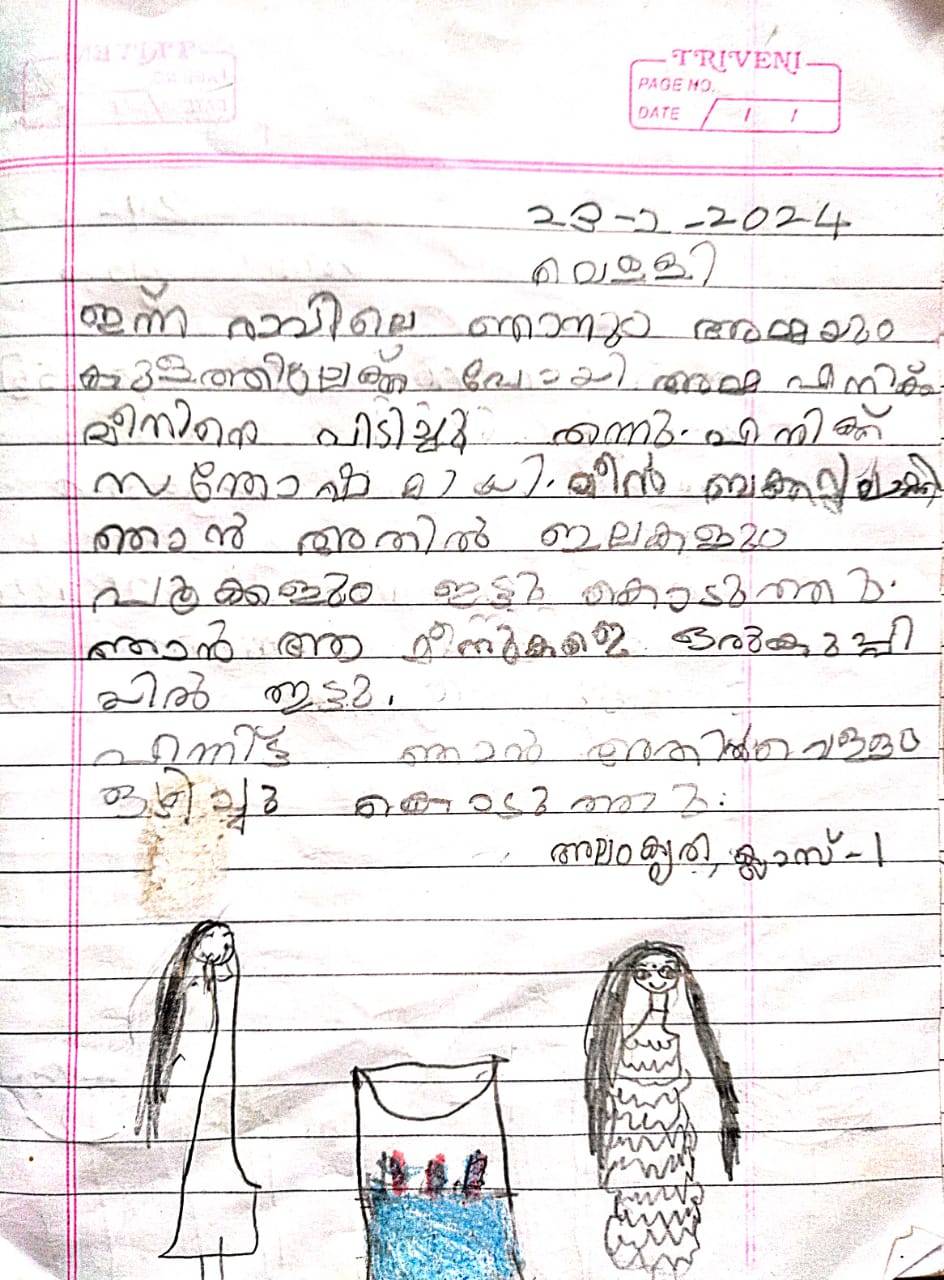 TRIVENI
PAGE NO.
DATE / / /
23-2-2024
വെള്ളി
ഇന്ന് രാവിലെ ഞാനും അമ്മയും
കുളത്തിലേക്ക് പോയി അമ്മ എനിക്ക്
മീനിനെ പിടിച്ചു തന്നു. എനിക്ക്
സന്തോഷമായി. മീൻ ബക്കറ്റിലാക്കി
ഞാൻ അതിൽ ഇലകളും
പൂക്കളും ഇട്ടു കൊടുത്തു.
ഞാൻ ആ മീനുകളെ ഒരു കുപ്പി
യിൽ ഇട്ടു.
എന്നിട്ട് ഞാൻ അതിൽ വെള്ളം
ഒഴിച്ചു കൊടുത്തു.
അലംകൃത, ക്ലാസ് -1